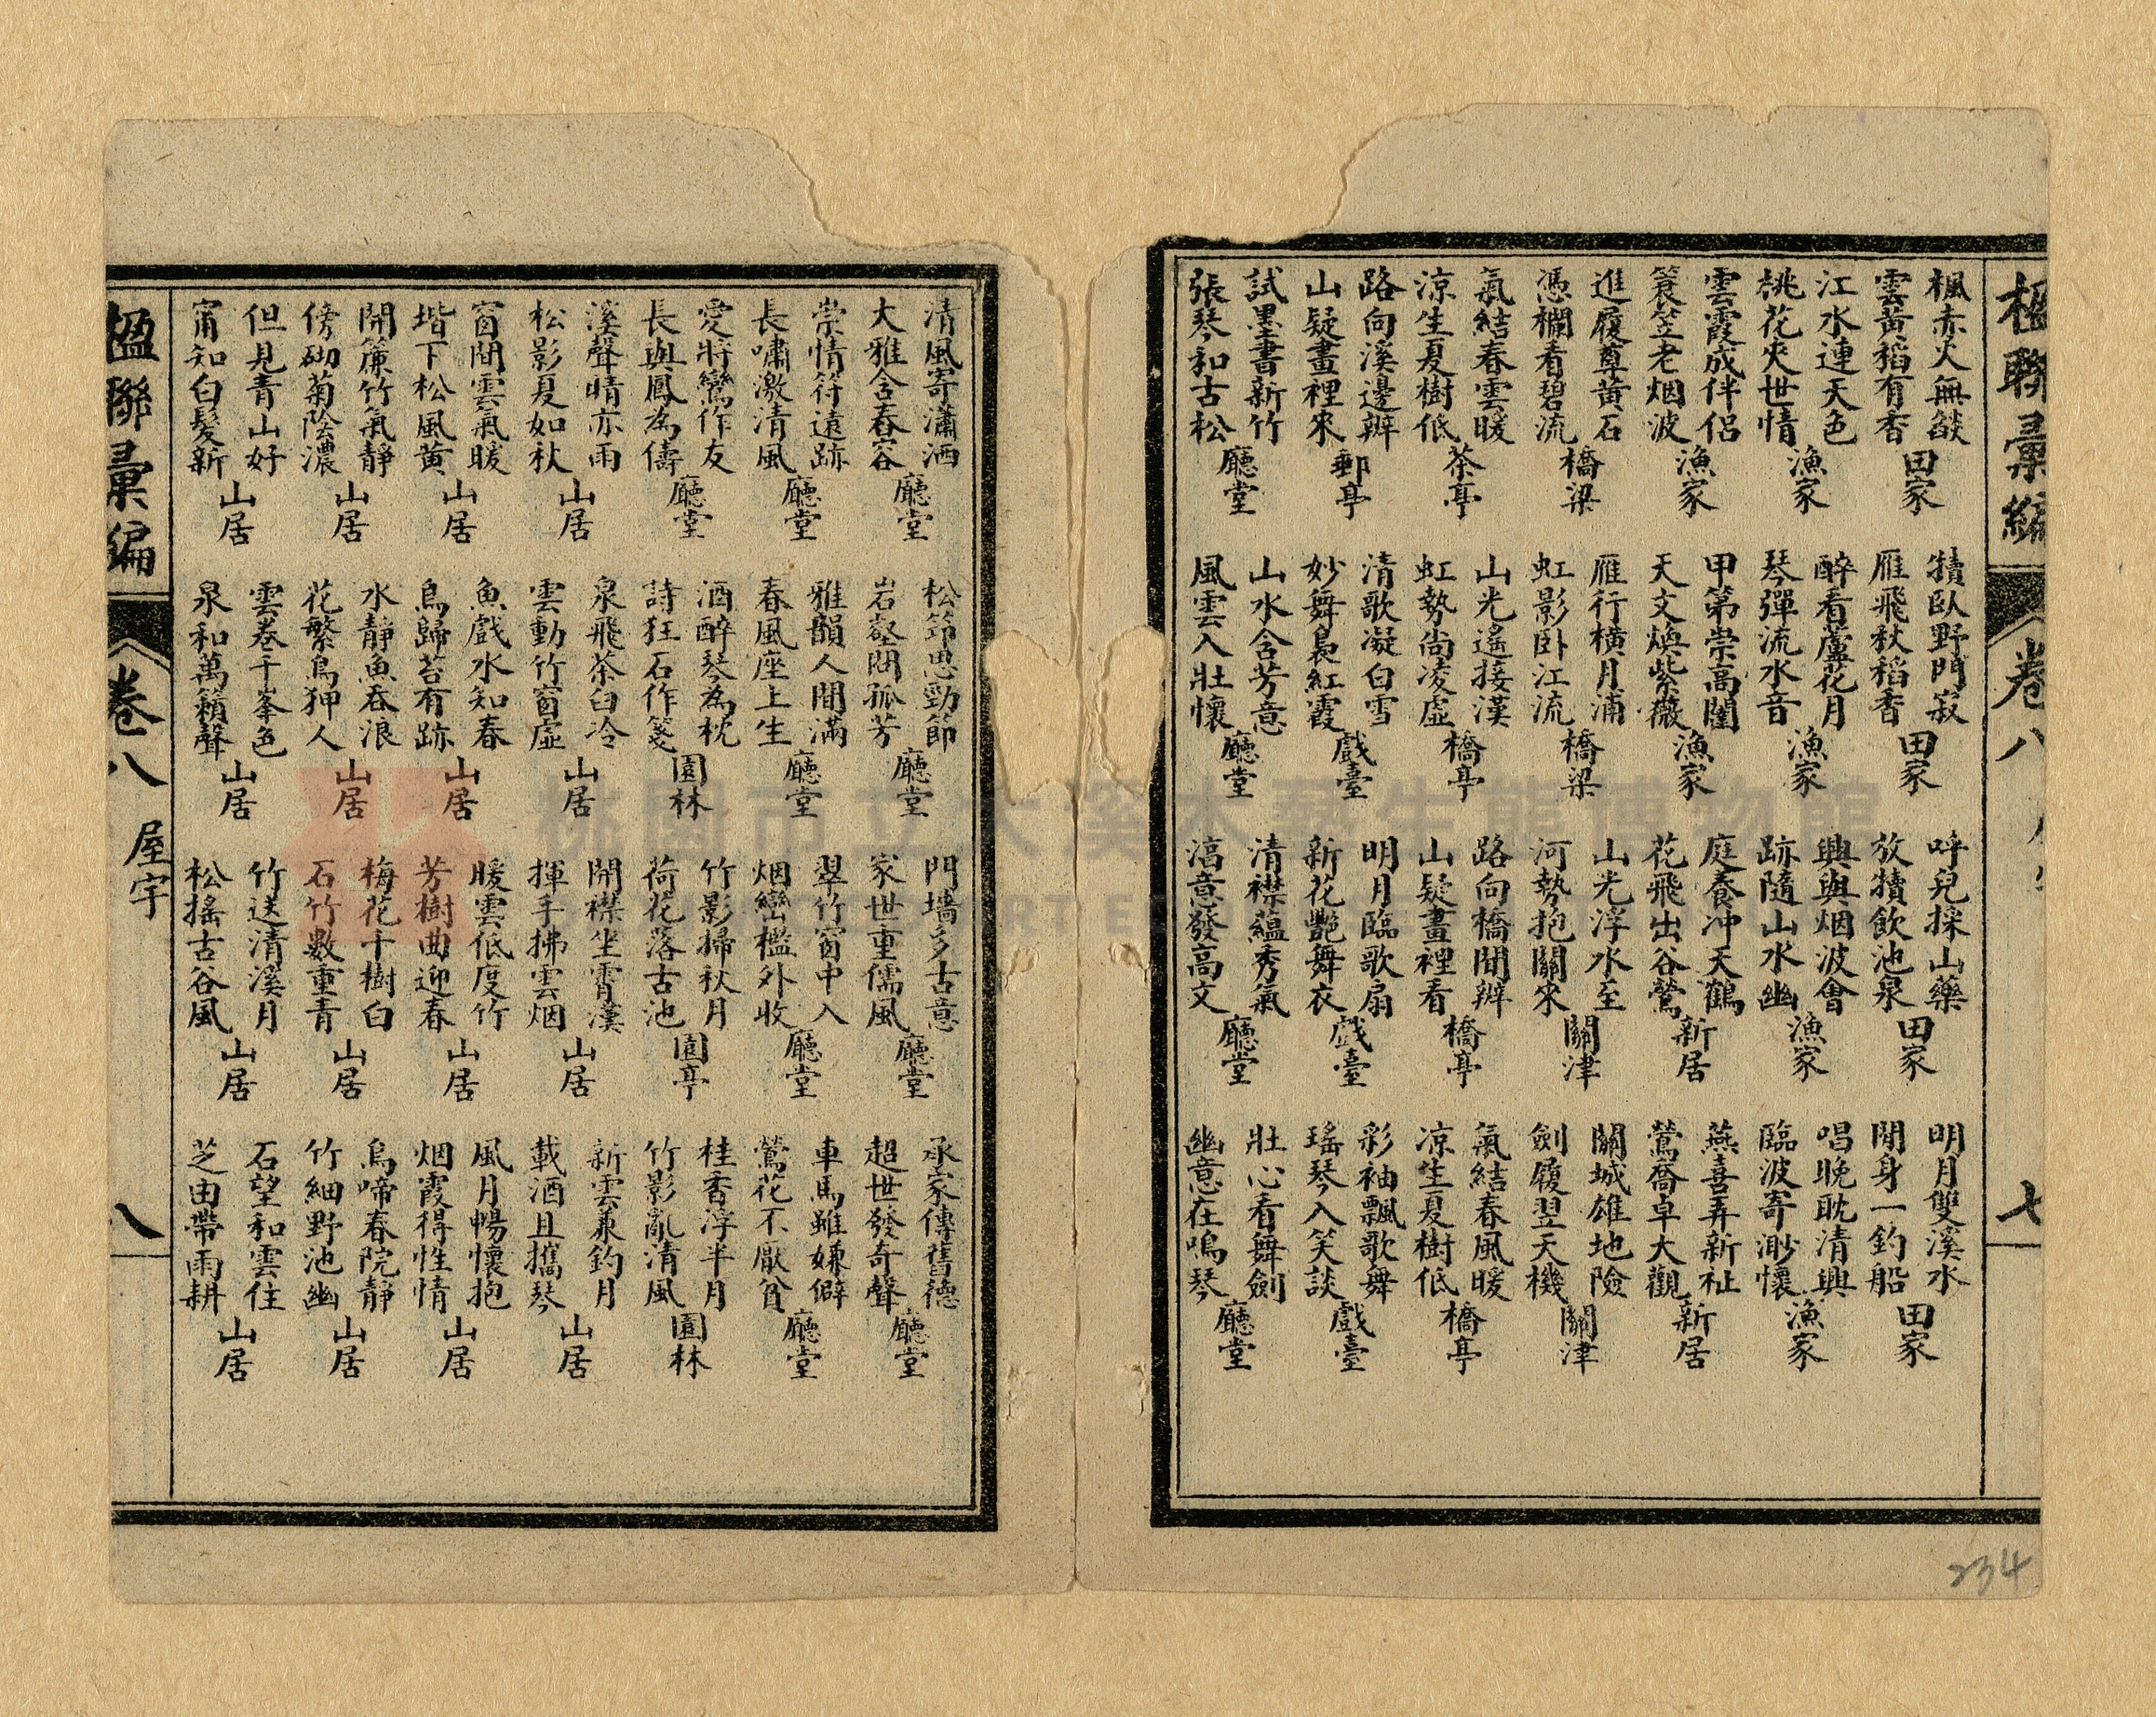 楹聯彙編
卷八
七
楓赤火無燄
雲黃稻有香
田家
江水連天色
桃花夾世情
漁家
雲霞成伴侶
簑笠老烟波
漁家
進履尊黃石
憑欄看碧流
橋梁
氣結春雲暖
涼生夏樹低
茶亭
路向溪邊辨
山疑畫裡來
郵亭
試墨書新竹
張琴和古松
廳堂
犢臥野門寂
雁飛秋稻香
田家
醉看蘆花月
琴彈流水音
漁家
甲第崇高閣
天文煥紫薇
漁家
雁行橫月浦
虹影卧江流
橋梁
山光遙接漢
虹勢尚凌虛
橋亭
清歌凝白雪
妙舞裊紅霞
戲臺
山水含芳意
風雲入壯懷
廳堂
呼兒採山藥
放犢飲池泉
田家
興與烟波會
跡隨山水幽
漁家
庭養冲天鶴
花飛出谷鶯
新居
山光浮水至
河勢抱關來
關津
路向橋間辨
山疑畫裡看
橋亭
明月臨歌扇
新花艷舞衣
戲臺
清襟蘊秀氣
高意發高文
廳堂
明月雙溪水
閒身一釣船
田家
唱晚耽清興
臨波寄渺懷
漁家
燕喜弄新祉
鶯喬卓大觀
新居
關城雄地險
劍履翌天機
關津
氣結春風暖
凉生夏樹低
橋亭
彩袖飄歌舞
瑤琴入笑談
戲臺
壯心看舞劍
幽意在鳴琴
廳堂
234
清風寄瀟洒
大雅含春容
廳堂
崇情符遠跡
長嘯激清風
廳堂
愛將鸞作友
長與鳳為儔
廳堂
溪聲晴亦雨
松影夏如秋
山居
窗閒雲氣暖
堦下松風黃
山居
開簾竹氣靜
傍砌菊陰濃
山居
但見青山好
甯知白髮新
山居
松筠思勁節
岩壑閟孤芳
廳堂
雅韻人間滿
春風座上生
廳堂
酒醉琴為枕
詩狂石作箋
園林
泉飛茶臼冷
雲動竹窗虛
山居
魚戲水知春
鳥歸苔有跡
山居
水靜魚吞浪
花繁鳥狎人
山居
雲卷千峯色
泉和萬籟聲
山居
門墻多古意
家世重儒風
廳堂
翠竹窗中入
烟巒檻外收
廳堂
竹影掃秋月
荷花落古池
園亭
開襟坐霄漢
揮手拂雲烟
山居
暖雲低度竹
芳樹曲迎春
山居
梅花千樹白
石竹數重青
山居
竹送清溪月
松搖古谷風
山居
承家傳舊德
超世發奇聲
廳堂
車馬雖嫌僻
鶯花不厭貧
廳堂
桂香浮半月
竹影亂清風
園林
新雲兼釣月
載酒且攜琴
山居
風月暢懷抱
烟霞得性情
山居
鳥啼春院靜
竹細野池幽
山居
石望和雲住
芝田帶雨耕
山居
楹聯彙編
卷八
屋宇
八
桃園市立大溪木藝生態博物館